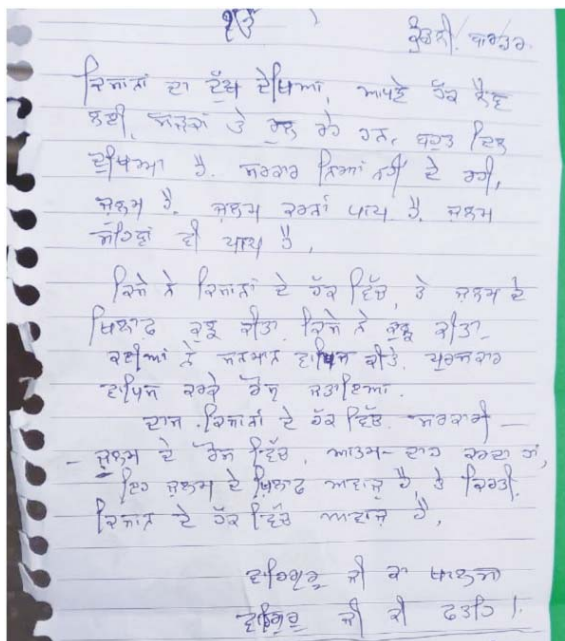 ੴ
ਕੁੰਡਲੀ ਬਾਰਡਰ
ਕਿਸਾਨਾਂ ਦਾ ਦੁੱਖ ਦੇਖਿਆ, ਆਪਣੇ ਹੱਕ ਲੈਣ
ਲਈ, ਸੜਕਾਂ ਤੇ ਰੁਲ ਰਹੇ ਹਨ, ਬਹੁਤ ਦਿਲ
ਦੁਖਿਆ ਹੈ. ਸਰਕਾਰ ਨਿਆਂ ਨਹੀਂ ਦੇ ਰਹੀ,
ਜ਼ੁਲਮ ਹੈ. ਜ਼ੁਲਮ ਕਰਨਾਂ ਪਾਪ ਹੈ. ਜ਼ੁਲਮ
ਸਹਿਣਾਂ ਵੀ ਪਾਪ ਹੈ,
ਕਿਸੇ ਨੇ ਕਿਸਾਨਾਂ ਦੇ ਹੱਕ ਵਿੱਚ, ਤੇ ਜ਼ੁਲਮ ਦੇ
ਖਿਲਾਫ ਕੁਝ ਕੀਤਾ, ਕਿਸੇ ਨੇ ਕੁਝ ਕੀਤਾ,
ਕਈਆਂ ਨੇ ਸਨਮਾਨ ਵਾਪਿਸ ਕੀਤੇ, ਪੁਰਸਕਾਰ
ਵਾਪਿਸ ਕਰਕੇ ਰੋਸ ਜਤਾਇਆ.
ਦਾਸ ਕਿਸਾਨਾਂ ਦੇ ਹੱਕ ਵਿੱਚ, ਸਰਕਾਰੀ -
- ਜ਼ੁਲਮ ਦੇ ਰੋਸ ਵਿੱਚ, ਆਤਮ-ਦਾਹ ਕਰਦਾ ਹਾਂ,
ਇਹ ਜ਼ੁਲਮ ਦੇ ਖ਼ਿਲਾਫ ਅਵਾਜ਼ ਹੈ, ਤੇ ਕਿਰਤੀ
ਕਿਸਾਨ ਦੇ ਹੱਕ ਵਿੱਚ ਆਵਾਜ਼ ਹੈ,
ਵਾਹਿਗੁਰੂ ਜੀ ਕਾ ਖਾਲਸਾ
ਵਾਹਿਗੁਰੂ ਜੀ ਕੀ ਫਤਹਿ।